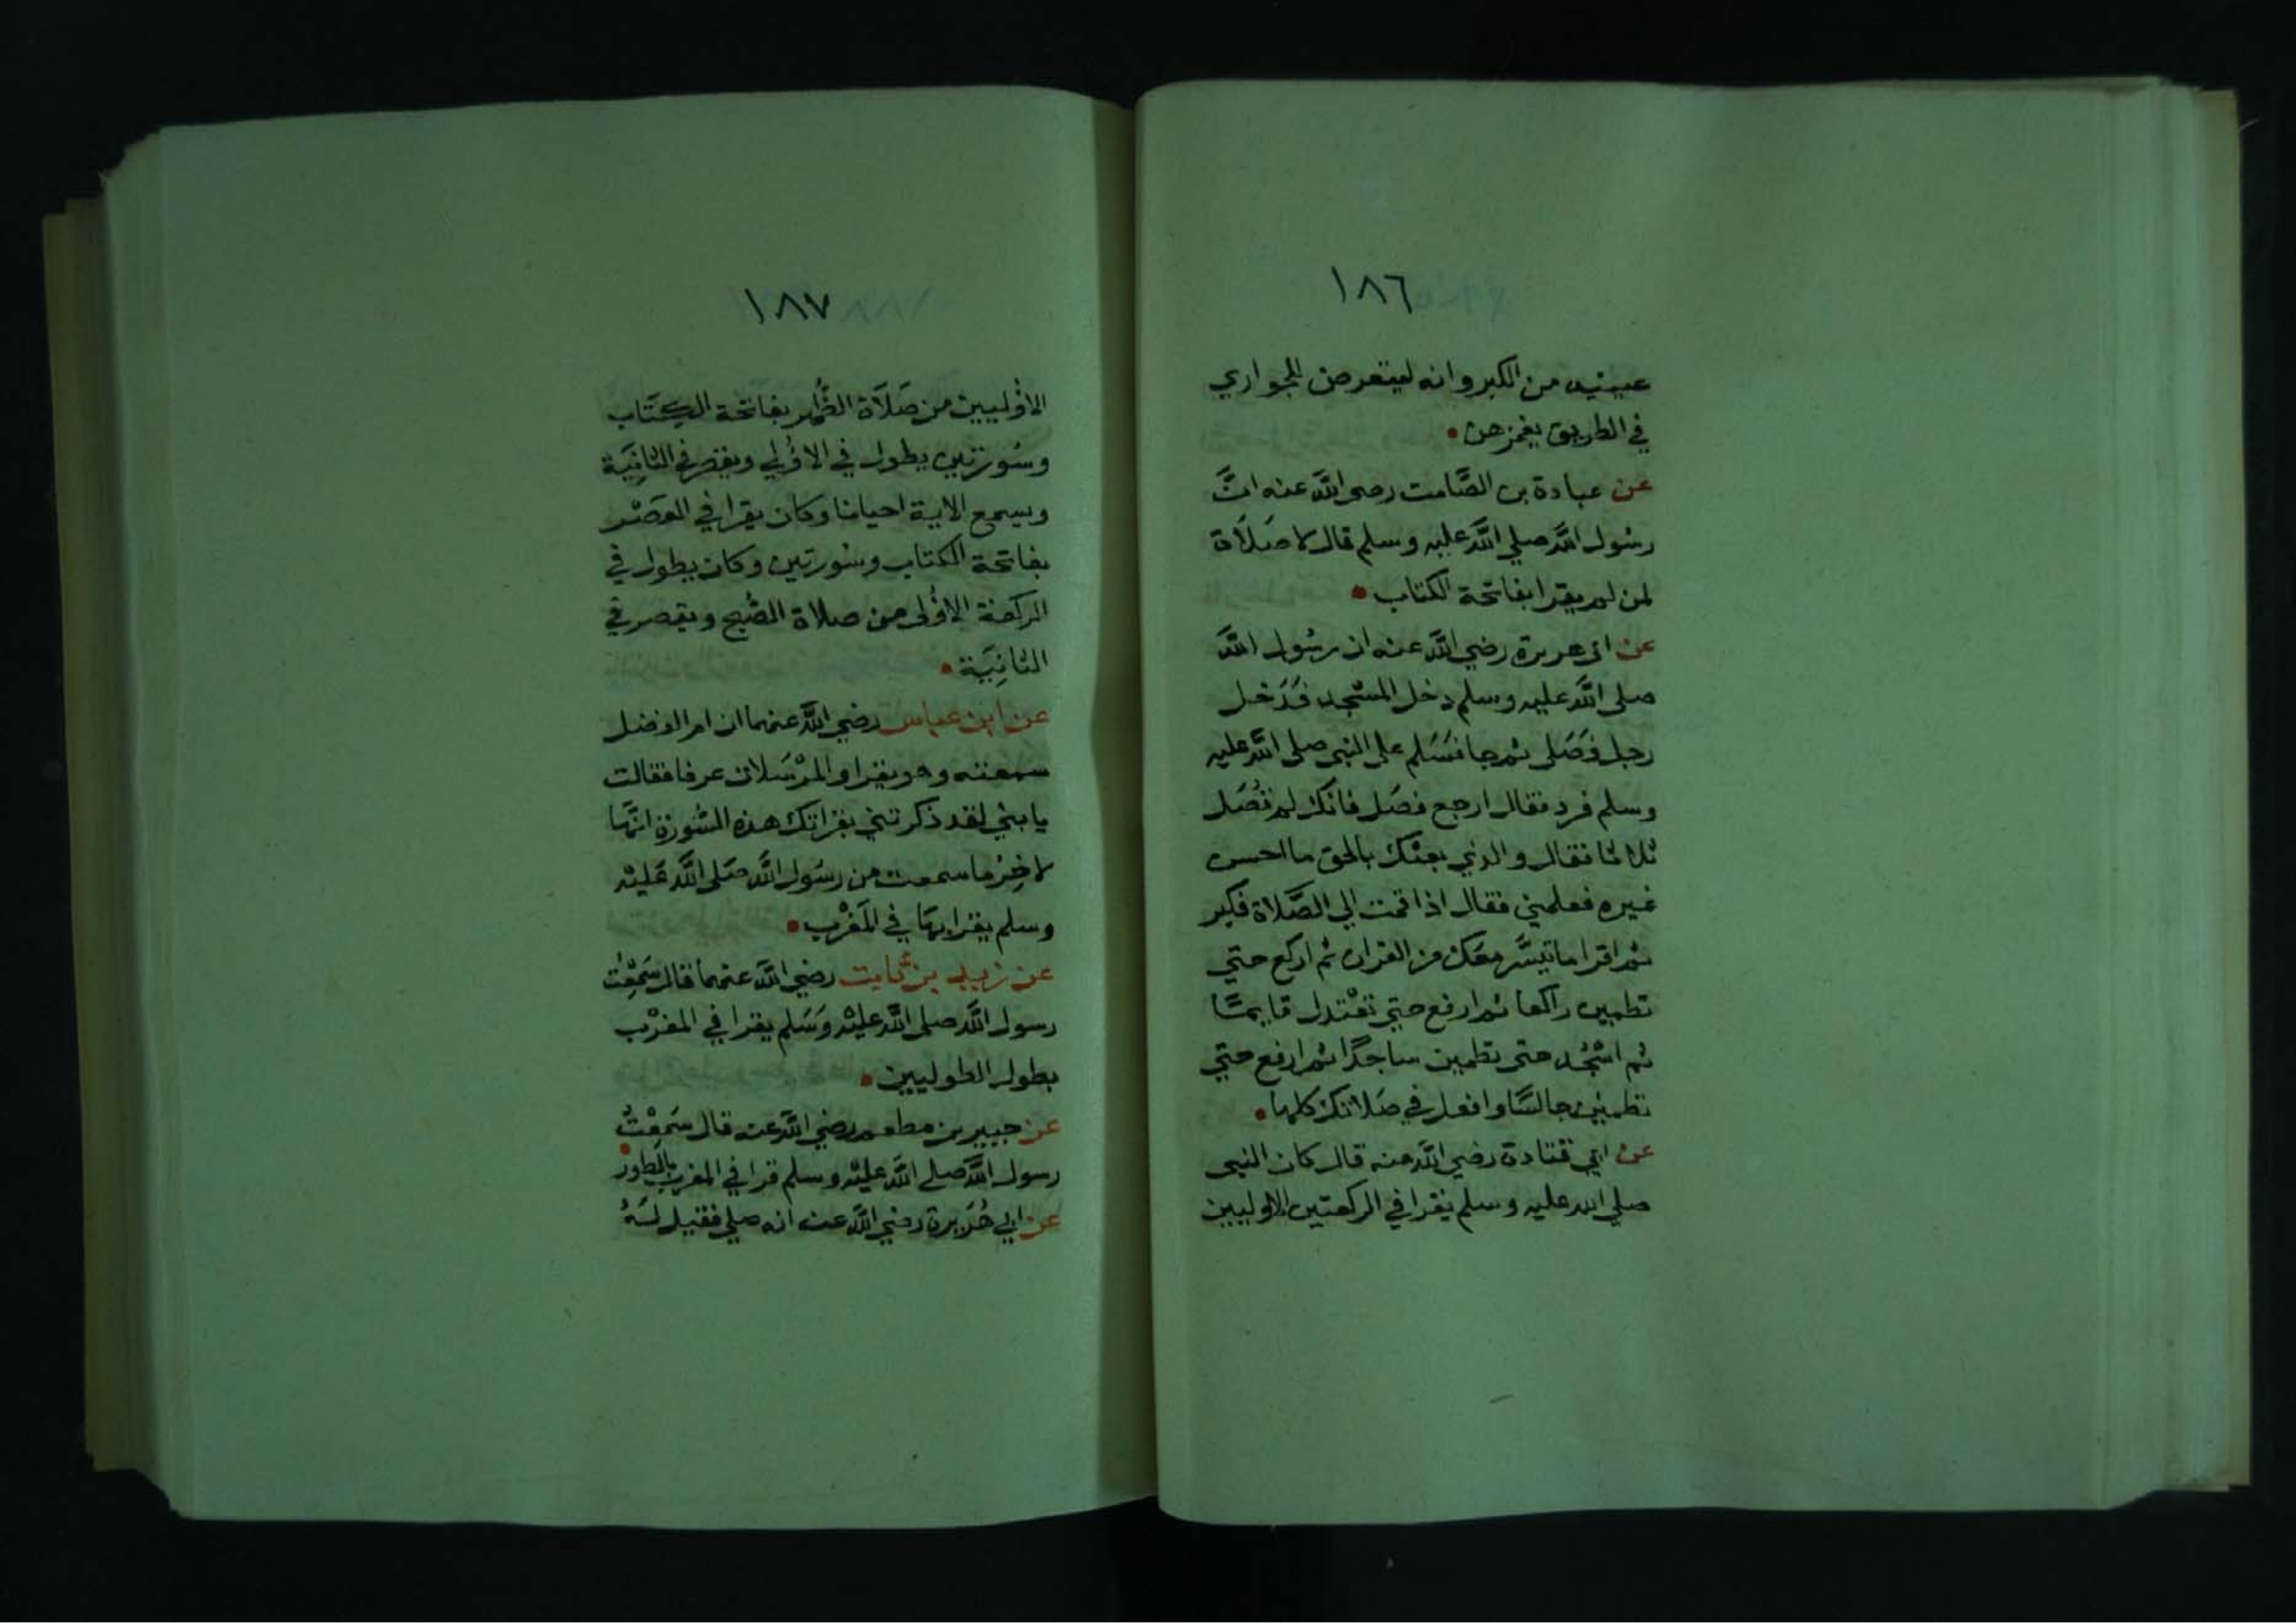 ١٨٦
عينيه من الكبر وانه ليتعرض للجواري
في الطريق يغمزهن
عن عبادة بن الصَّامت رضي اللَّه عنه انَّ
رسُول اللَّه صلي اللَّه عليه وسلم قال لا صَلَاة
لمن لم يقرا بفاتحة الكتاب
عن ابي هريرة رضي اللَّه عنه ان رسُول اللَّه
صلى اللَّه عليه وسلم دخل المسْجد فدَخل
رجل فَصَلي ثم جا فسَلم على النبي صلى اللَّه عليه
وسلم فرد فقال ارجع فصَل فانك لم تصَل
ثلاثا فقال والذي بعثك بالحق ما احسن
غيره فعلمني فقال اذا قمت الي الصَّلاة فكبر
ثم اقرا ما تيسَّر معَك من القران ثم اركع حتي
تطمين راكعا ثم ارفع حتي تعْتدل قايمًا
ثم اسْجُد حتى تطمين ساجدًا ثم ارفع حتي
تطمين جالسًا وافعل في صَلاتك كلها
عن ابي قتادة رضي اللَّه عنه قال كان النبي
صلي الله عليه وسلم يقرا في الركعتين الاوليين
١٨٧
الاوُليين من صَلَاة الظُّهر بفاتحة الكِتَاب
وسُورتين يطول في الاوُلي ويقصر في الثانِيَة
ويسمع الاية احيانا وكان يقرا في العَصْر
بفاتحة الكتاب وسُورتين وكان يطول في
الركعة الاوُلى من صلاة الصُّبح ويقصر في
الثانِيَة
عن ابن عباس رضي اللَّه عنهما ان ام الفضل
سمعته وهو يقرا والمرْسَلات عرفا فقالت
يا بني لقد ذكرتني بقراتك هذه السُّورة انهَا
لاخِرُ ما سمعت من رسَول اللَّه صَلى اللَّه عَليْه
وسلم يقرا بهَا في المَغْرب
عن زيد بن ثابت رضي اللَّه عنهما قال سَمِعْت
رسول اللَّه صلى اللَّه عليْه وَسَلم يقرا في المغرْب
بطول الطوليين
عن جبير بن مطعم رضي اللَّه عنه قال سَمِعْتُ
رسول اللَّه صلے اللَّه عليْه وسلم قرا في المغرب بالطور
عن ابي هُرَيرة رضي اللَّه عنه انه صلي فقيل لَهُ